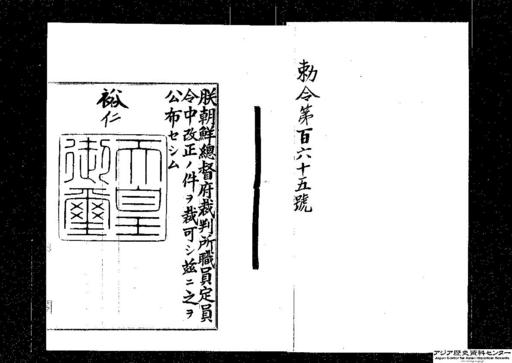 勅令第百六十五號
朕朝鮮總督府裁判所職員定員
令中改正ノ件ヲ裁可シ茲ニ之ヲ
公布セシム
裕仁
天皇
御璽
アジア歴史資料センター
Japan Center for Asian Historical Records